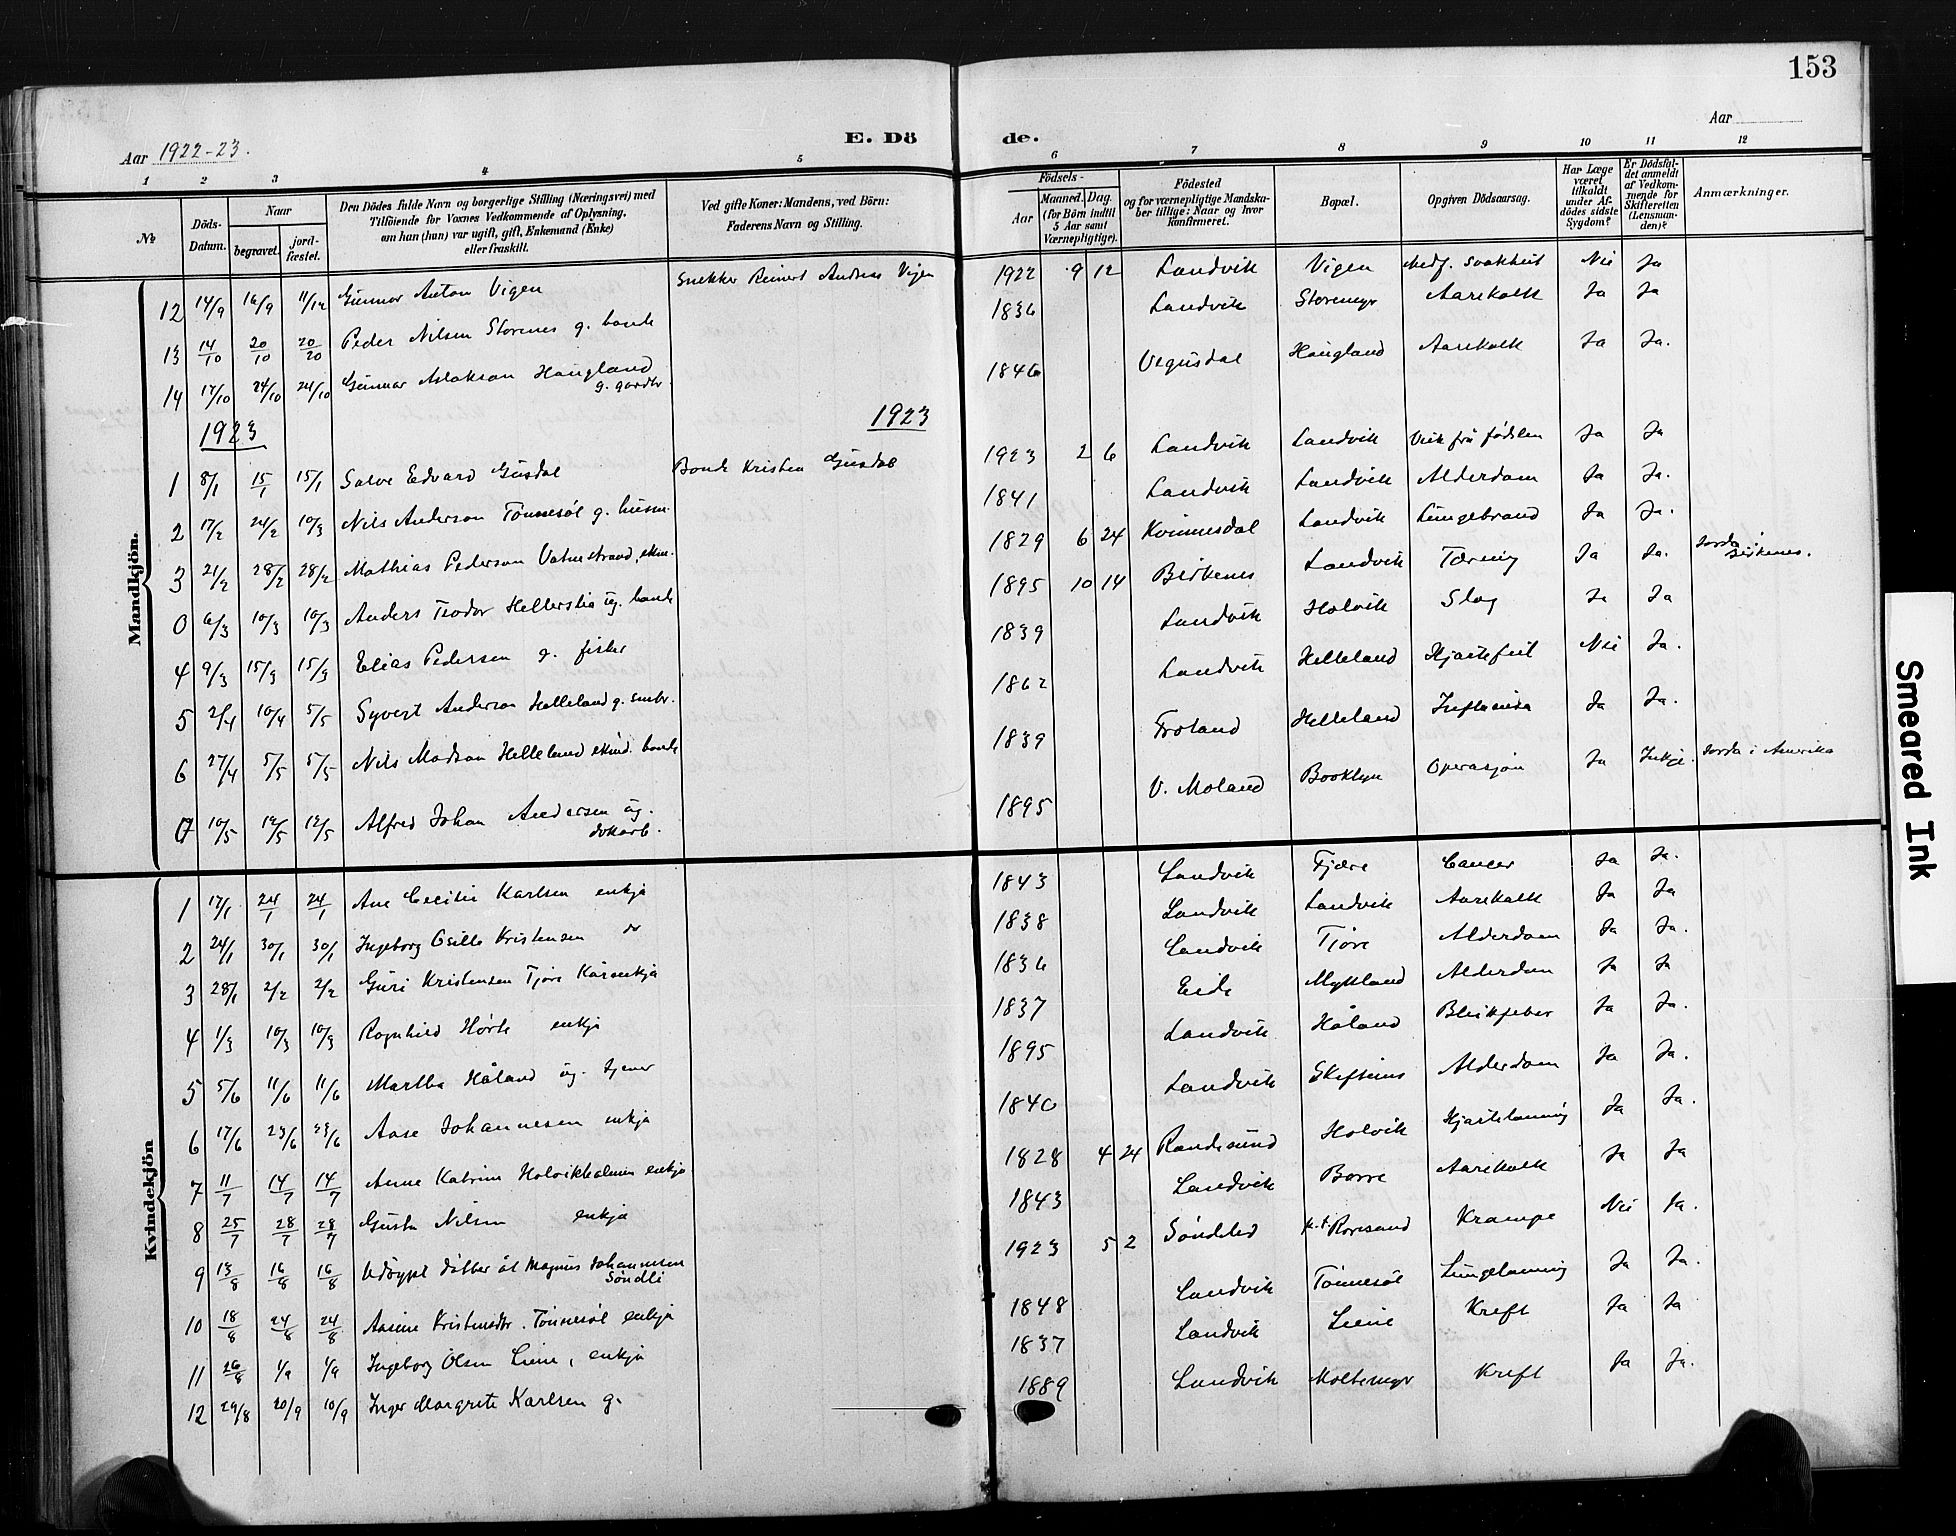 153
Aar 1922-23.
E. Dö
de.
Aar
1 2 3 4 5 6 7 8 9 10 11 12
№
Döds-Datum.
Naar
begravet.
jord-fæstet.
Den Dödes fulde Navn og borgerlige Stilling (Næringsvei) med
Tilföiende for Voxnes Vedkommende af Oplysning,
om han (hun) var ugift, gift, Enkemand (Enke)
eller fraskilt.
Ved gifte Koner: Mandens, ved Börn:
Faderens Navn og Stilling.
Födsels-
Aar
Maaned. Dag.
(for Börn indtil
5 Aar samt
Værnepligtige).
Födested
og for værnepligtige Mandska-
ber tillige: Naar og hvor
konfirmeret.
Bopæl.
Opgiven Dödsaarsag.
Har Læge
været
tilkaldt
under Af-
dödes sidste
Sygdom?
Er Dödsfal-
det anmeldt
af Vedkom-
mende for
Skifteretten
(Lensman-
den)?
Anmærkninger.
Mandkjön.
12 14/9 16/9 11/12 Gunnar Anton Vigen Snekker Reinert Andreas Vigen 1922 9 12 Landvik Vigen Medf. svakheit Nei Ja
13 14/10 20/10 20/20 Peder Nilsen Storenes g. bonde 1836 Landvik Storemyr Aarekalk Ja Ja
14 17/10 24/10 24/10 Gunnar Aslakson Haugland g. gardbr. 1846 Vegusdal Haugland Aarekalk Ja Ja.
1923 1923
1 8/1 15/1 15/1 Salve Edvard Gusdal Bonde Kristen Gusdal 1923 2 6 Landvik Landvik Veik frå fødslen Ja Ja
2 17/2 24/2 10/3 Nils Anderson Tønnesøl g. husm. 1841 Landvik Landvik Alderdom Ja Ja.
3 21/2 28/2 28/2 Mathias Pederson Vatnestrand, ekm. 1829 6 24 Kvinnesdal Landvik Lungebrand Ja Ja.
0 6/3 10/3 10/3 Anders Teodor Hellerslia ug. bonde 1895 10 14 Birkenes Landvik Tæring Ja Ja. Jorda i Birkenes.
4 9/3 15/3 15/3 Elias Pedersen g. fisker 1839 Landvik Holvik Slag Ja Ja
5 2/4 10/4 5/5 Syvert Anderson Helleland g. smbr. 1862 Landvik Helleland Hjartefeil Nei Ja.
6 27/4 5/5 5/5 Nils Madson Helleland ekm. bonde 1839 Froland Helleland Influensa Ja Ja.
0 10/5 12/5 12/5 Alfred Johan Andersen ug. dokarb. 1895 V. Moland Booklyn Operasjon Ja Inkje. Jorda i Amerika
Kvindekjön
1 17/1 24/1 24/1 Ane Cecilie Karlsen enkja 1843 Landvik Fjære Cancer Ja Ja.
2 24/1 30/1 30/1 Ingeborg Osille Kristensen do 1838 Landvik Landvik Aarekalk Ja Ja
3 28/1 2/2 2/2 Guri Kristensen Tjøre Kårenkja 1836 Landvik Tjøre Alderdom Ja Ja.
4 1/3 10/3 10/3 Ragnhild Hørte enkja 1837 Eide Mykland Alderdom Ja Ja
5 5/6 11/6 11/6 Martha Håland ug. tjener 1895 Landvik Håland Bleikfeber Ja Ja.
6 17/6 23/6 23/6 Aase Johannesen enkja 1840 Landvik Skifteins Alderdom Ja Ja.
7 11/7 14/7 14/7 Anne Katrine Holvikholmen enkja 1828 4 24 Randesund Holvik Hjartelamning Ja Ja.
8 25/7 28/7 28/7 Gusta Nilsen enkja 1843 Landvik Borre Aarekalk Ja Ja
9 13/8 16/8 16/8 Udøypt dotter åt Magnus Johannesen Søndli 1923 5 2 Søndeled Roresand Krampe Nei Ja.
10 18/8 24/8 24/8 Aasine Kristensdtr. Tønnesøl enkja 1848 Landvik Tønnesøl Lungelamning Ja Ja.
11 26/8 1/9 1/9 Ingeborg Olsen Liene, enkja 1837 Landvik Liene Kreft Ja Ja
12 29/8 20/9 10/9 Inger Margrete Karlsen g. 1889 Landvik Moltemyr Kreft Ja Ja.
Smeared Ink